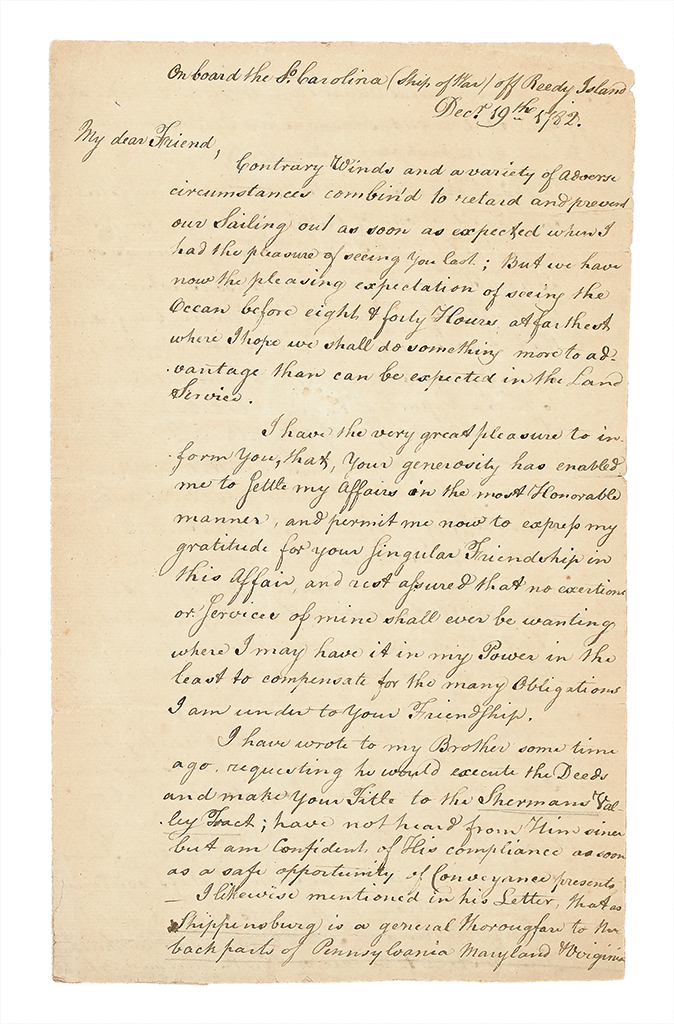 On board the So. Carolina (Ship of War) off Reedy Island
Decr. 19th 1782.
My dear Friend,
Contrary Winds and a variety of adverse
circumstances combin'd to retard and prevent
our Sailing out as soon as expected when I
had the pleasure of seeing You last; But we have
now the pleasing expectation of seeing the
Ocean before eight & forty Hours, at farthest
where I hope we shall do something more to ad-
vantage than can be expected in the Land
Service.
I have the very great pleasure to in-
form You, that, Your generosity has enabled
me to settle my Affairs in the most Honorable
manner, and permit me now to express my
gratitude for your singular Friendship in
this Affair, and rest assured that no exertions
or Services of mine shall ever be wanting
where I may have it in my Power in the
least to compensate for the many Obligations
I am under to Your Friendship.
I have wrote to my Brother some time
ago, requesting he would execute the Deeds
and make Your Title to the Shermans Val-
ley Tract; have not heard from Him since
but am Confident of His compliance as soon
as a safe opportunity of Conveyance presents
— I likewise mentioned in his Letter, that as
Shippensburg is a general Thorougfare to the
back parts of Pennsylvania Maryland & Virginia